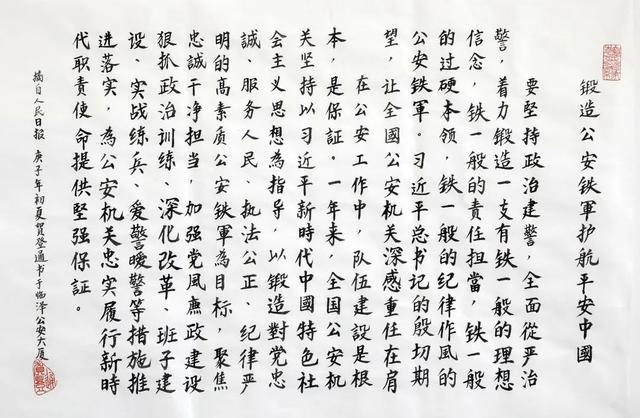 鍛造公安铁軍护航平安中國
要堅持政治建警，全面從严治
警，着力鍛造一支有铁一般的理想
信念，铁一般的责任担當，铁一般
的过硬本领，铁一般的纪律作風的
公安铁軍。习近平总书记的殷切期
望，让全國公安机关深感重任在肩
在公安工作中，队伍建設是根
本，是保证。一年来，全国公安机
关坚持以习近平新時代中國特色社
会主义思想為指导，以鍛造對党忠
誠、服务人民、执法公正、纪律严
明的高素质公安铁軍為目标，聚焦
忠誠干净担当，加强党風廉政建设
狠抓政治训练、深化改革、班子建
设、实战练兵、爱警暖警等措施推
进落实，為公安机关忠实履行新時
代职責使命提供堅强保証。
摘自人民日报 庚子年初夏賀登通书于临泽公安大厦